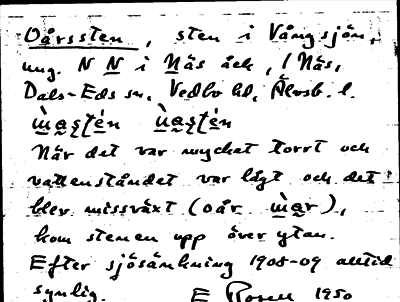 Oårssten, sten i Vångsjön,
ung. N N i Näs äck, / Näs,
Dals-Eds sn, Vedbo hd, Älvsb. l.
När det var mycket torrt och
vattenståndet var lågt och det
blev missväxt (oår ),
kom stenen upp över ytan.
Efter sjösänkning 1908-09 alltid
synlig. E Rosell 1950